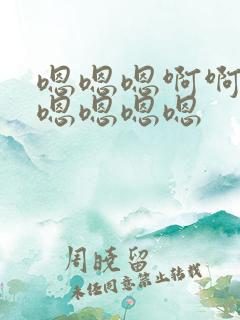 嗯嗯嗯啊啊
嗯嗯嗯嗯
周晓留
未经同意禁止转载